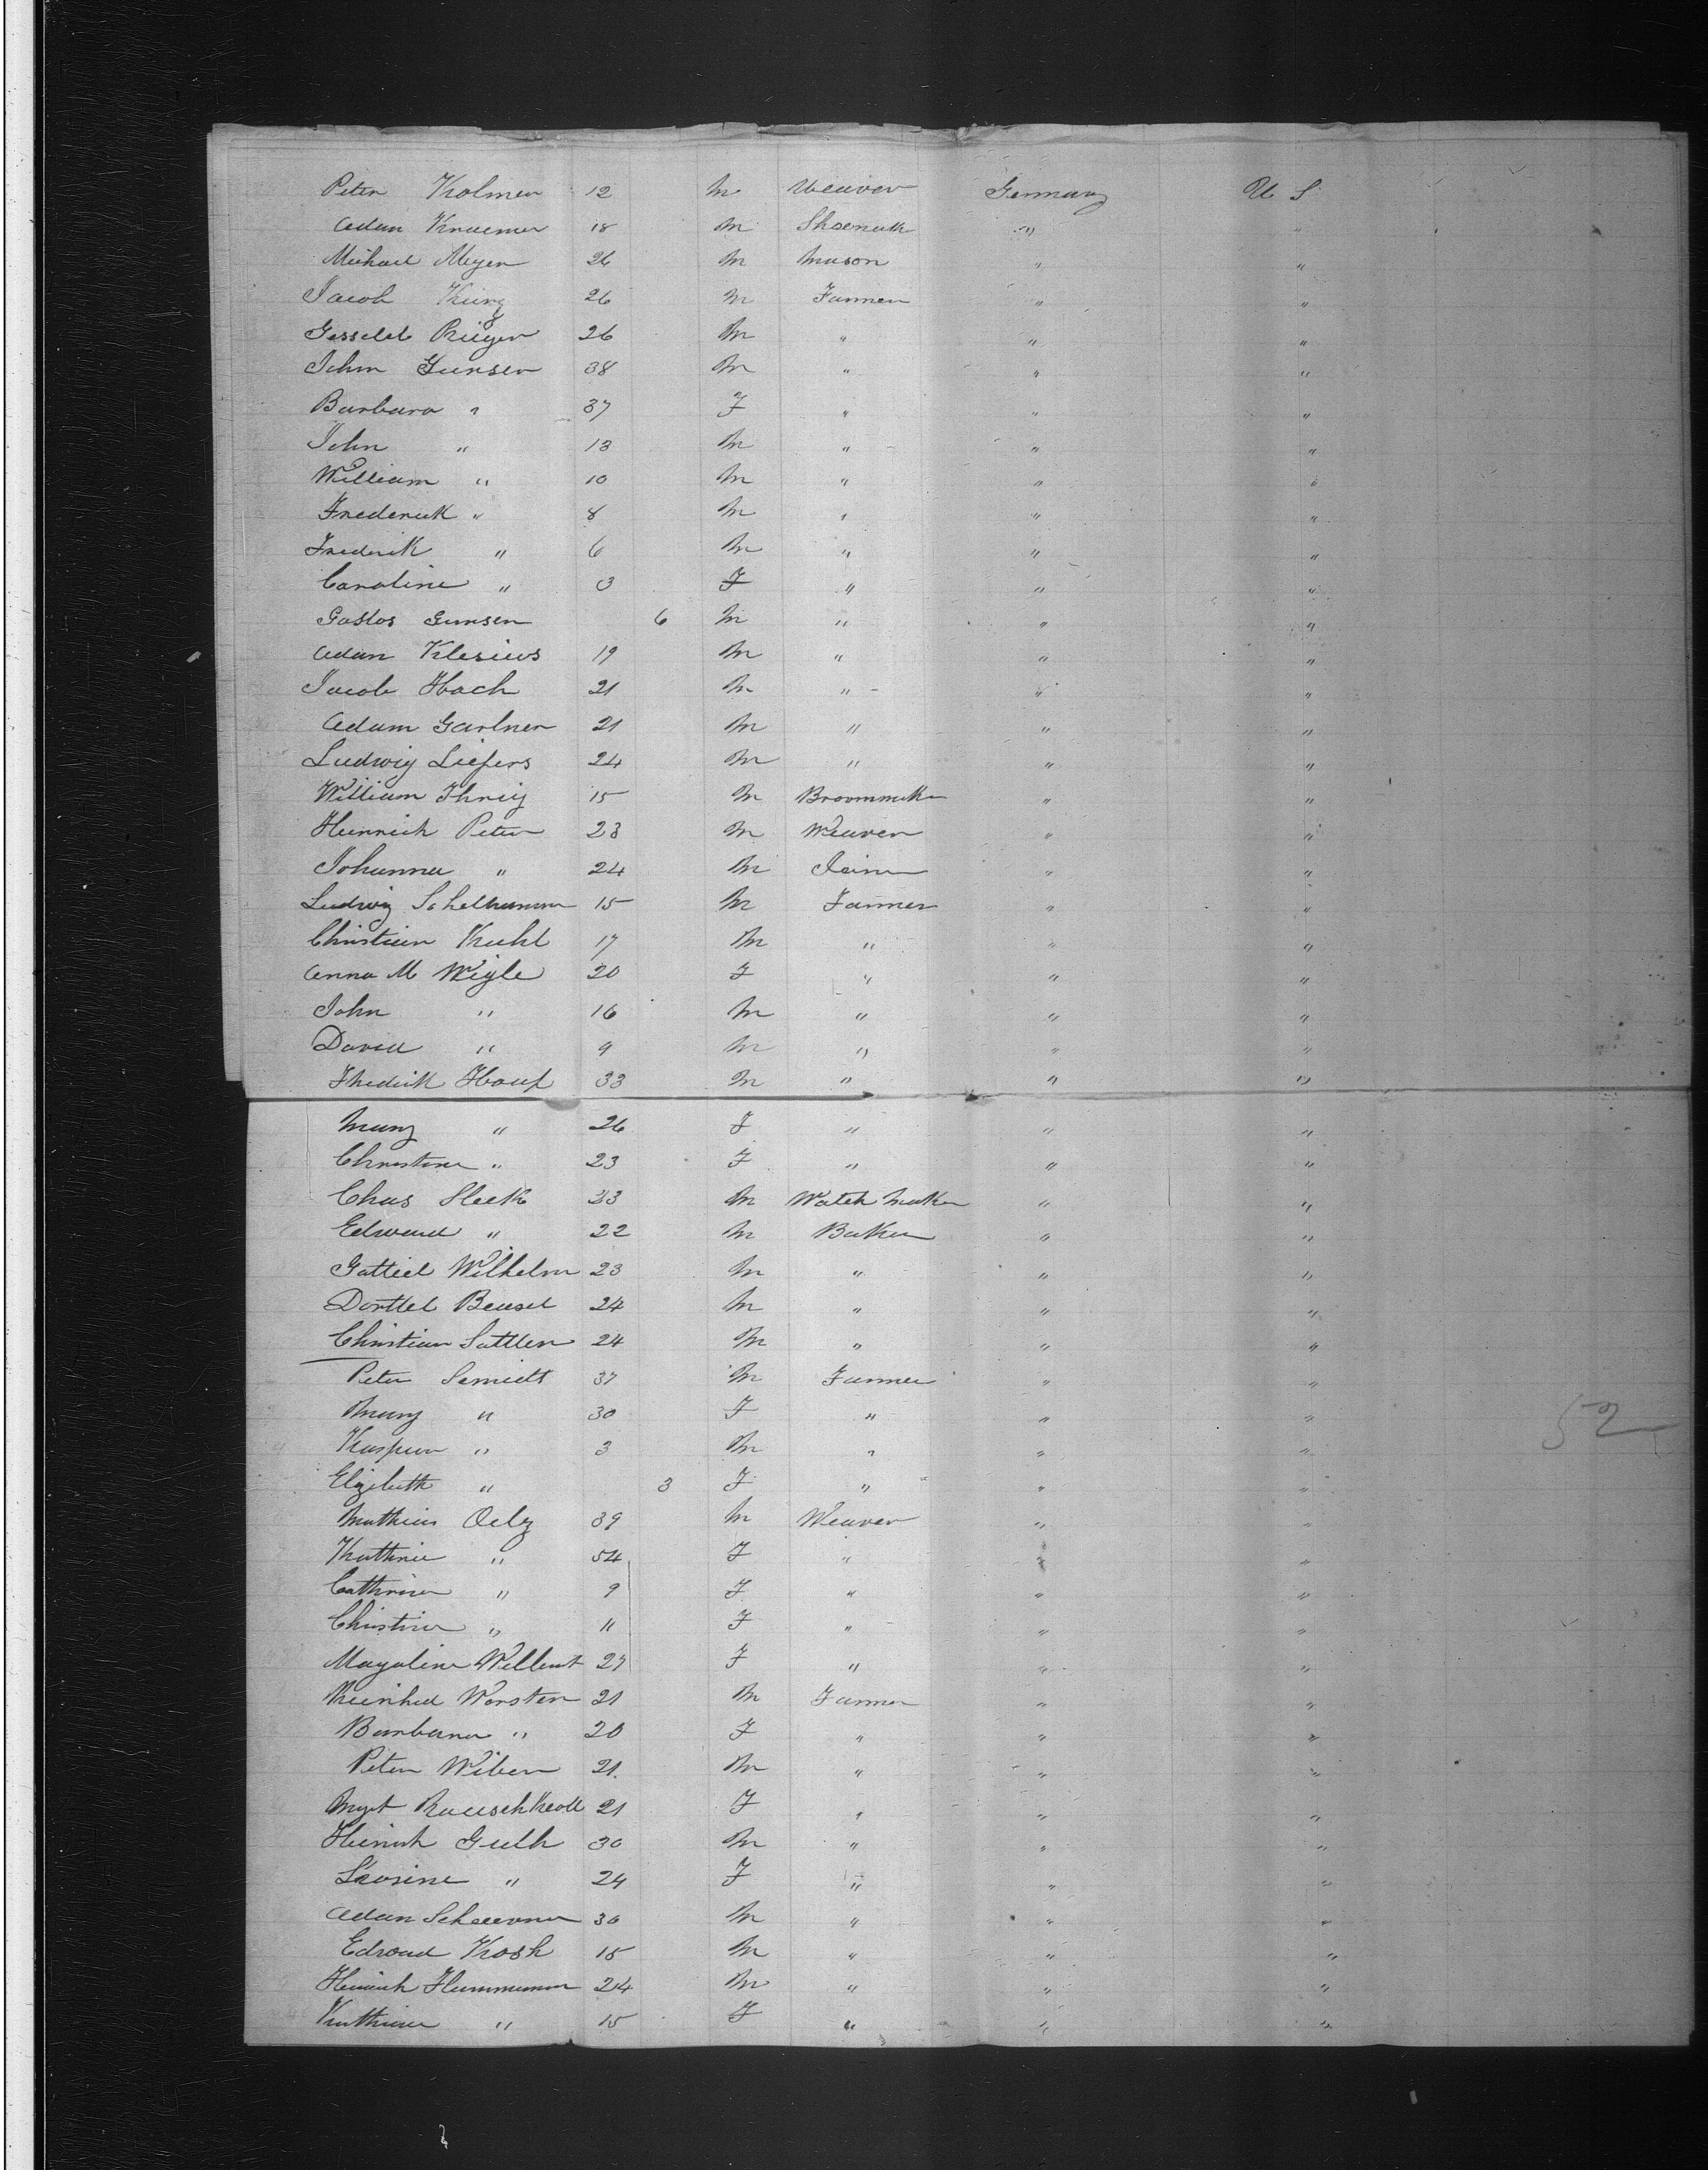 Peter Kolmer 12 M Weaver Germany U S
Adam Kraemer 18 M Shoemak " "
Michael Meyer 26 M Mason " "
Jacob Kurz 26 M Farmer " "
Rieger 26 M " " "
John Gunser 38 M " " "
Barbara " 37 F " " "
John " 13 M " " "
William " 10 M " " "
Frederick " 8 M " " "
Frederik " 6 M " " "
Caroline " 3 F " " "
Gunsen 6 M " " "
Adam Klesius 19 M " " "
Jacob Hoch 21 M " " "
Adam Gartner 21 M " " "
Ludwig Liefers 24 M " " "
William Ihrig 15 M Broommak " "
Heinrich Peter 23 M Weaver " "
Johanna " 24 M " "
Ludwig 15 M Farmer " "
Christian Kuhl 17 M " " "
Anna M Wigle 20 F " " "
John " 16 M " " "
David " 9 M " " "
Fredrik Houf 33 M " " "
Mary " 26 F " " "
Christine " 23 F " " "
Chas Sleek 23 M Watch Maker " "
Edward " 22 M Baker " "
Gottiel Wilhelm 23 M " " "
Dorttel Beusel 24 M " " "
Christian Sattler 24 M " " "
Peter Semidt 37 M Farmer " "
Mary " 30 F " " "
Kasper " 3 M " " "
Elizibeth " 3 F " " "
52
Mathias Oelz 39 M Weaver " "
Kathrie " 54 F " " "
Cathrine " 9 F " " "
Christine " 11 F " " "
Magaline 27 F " " "
Worster 21 M Farmer " "
Barbara " 20 F " " "
Peter Wiber 21 M " " "
Mgt 21 F " " "
Heinrich Guth 30 M " " "
" 24 F " " "
Adam 30 M " " "
Edward Kosh 15 M " " "
Heinrich 24 M " " "
Kathrine " 15 F " " "